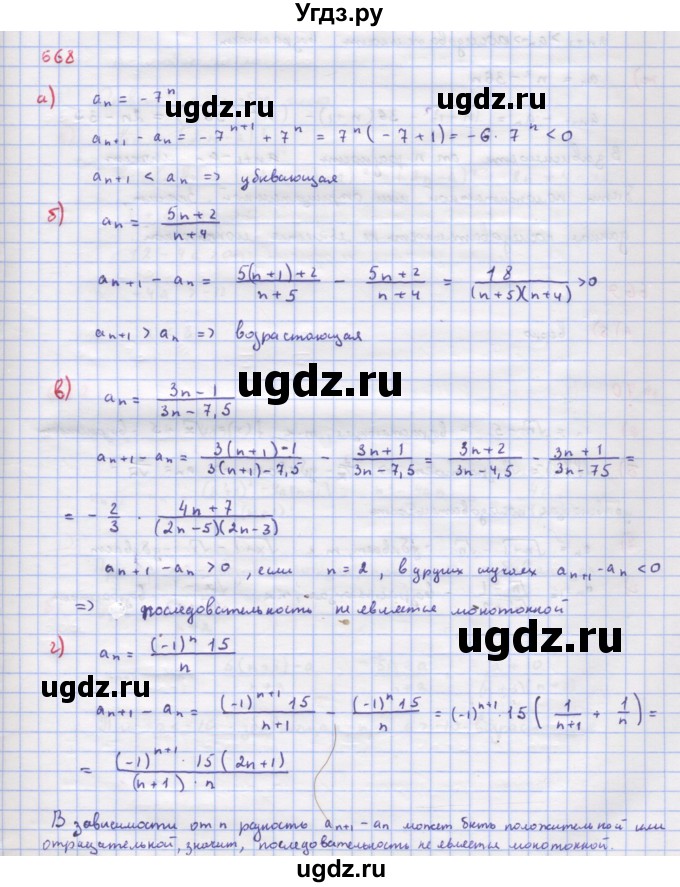 Угдз.ру
568
а) aₙ = - 7ⁿ
aₙ₊₁ - aₙ = - 7ⁿ⁺¹ + 7ⁿ = 7ⁿ(- 7 + 1) = -6 · 7ⁿ < 0
aₙ₊₁ < aₙ => убивающая
б) aₙ = (5n + 2)/(n + 4)
aₙ₊₁ - aₙ = (5(n+1)+2)/(n+5) - (5n+2)/(n+4) = 18/((n+5)(n+4)) > 0
aₙ₊₁ > aₙ => возрастающая
в) aₙ = (3n - 1)/(3n - 7,5)
aₙ₊₁ - aₙ = (3(n+1)-1)/(3(n+1)-7,5) - (3n+1)/(3n-7,5) = (3n+2)/(3n-4,5) - (3n+1)/(3n-75) =
= - 2/3 · (4n+7)/((2n-5)(2n-3))
aₙ₊₁ - aₙ > 0 , если n = 2 , в других случаях aₙ₊₁ - aₙ < 0
=> последовательность не является монотонной
г) aₙ = ((-1)ⁿ 15)/n
aₙ₊₁ - aₙ = ((-1)ⁿ⁺¹ 15)/(n+1) - ((-1)ⁿ 15)/n = (-1)ⁿ⁺¹ · 15 (1/(n+1) + 1/n) =
= ((-1)ⁿ⁺¹ · 15 (2n+1))/((n+1) · n)
В зависимости от n разность aₙ₊₁ - aₙ может быть положительной или
отрицательной, значит, последовательность не является монотонной.
ugdz.ru
ugdz.ru
ugdz.ru
ugdz.ru
ugdz.ru
ugdz.ru
ugdz.ru
ugdz.ru
ugdz.ru